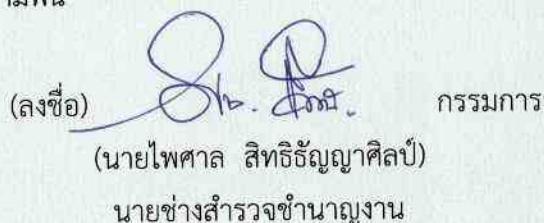 (ลงชื่อ) กรรมการ
(นายไพศาล สิทธิธัญญาศิลป์)
นายช่างสำรวจชำนาญงาน